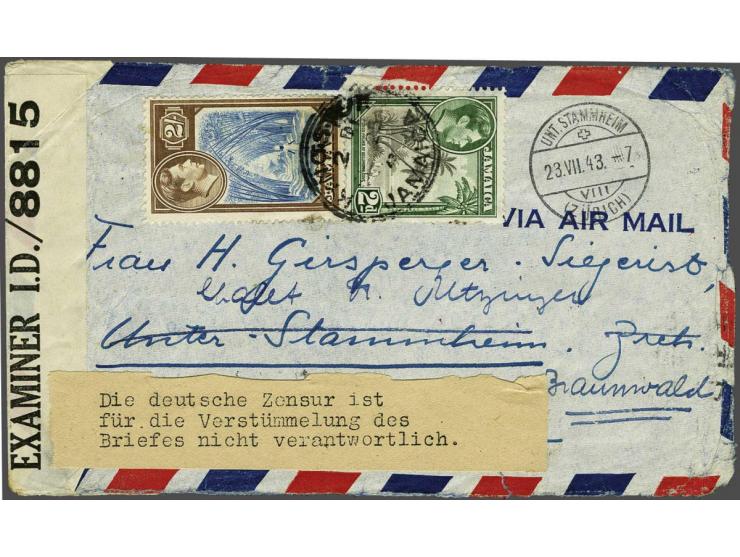 EXAMINER I.D./8815
2/-
JAMAICA
JAMAICA
UNT. STAMMHEIM
23.VII.43. 7
VIII
(ZÜRICH)
VIA AIR MAIL
Frau H. Girsperger-Siegerist,
Unter-Stammheim.
Braunwald
Die deutsche Zensur ist
für die Verstümmelung des
Briefes nicht verantwortlich.